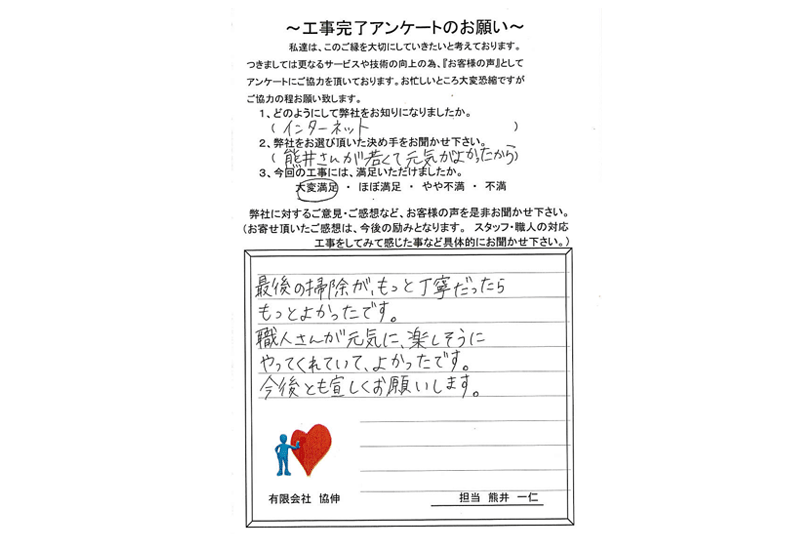 ～工事完了アンケートのお願い～
私達は、このご縁を大切にしていきたいと考えております。
つきましては更なるサービスや技術の向上の為、『お客様の声』として
アンケートにご協力を頂いております。お忙しいところ大変恐縮ですが
ご協力の程お願い致します。
1、どのようにして弊社をお知りになりましたか。
（インターネット）
2、弊社をお選び頂いた決め手をお聞かせ下さい。
（熊井さんが若くて元気がよかったから）
3、今回の工事には、満足いただけましたか。
大変満足 ・ ほぼ満足 ・ やや不満 ・ 不満
弊社に対するご意見・ご感想など、お客様の声を是非お聞かせ下さい。
（お寄せ頂いたご感想は、今後の励みとなります。 スタッフ・職人の対応
工事をしてみて感じた事など具体的にお聞かせ下さい。）
最後の掃除が、もっと丁寧だったら
もっとよかったです。
職人さんが元気に、楽しそうに
やってくれていて、よかったです。
今後とも宜しくお願いします。
有限会社 協伸
担当 熊井 一仁